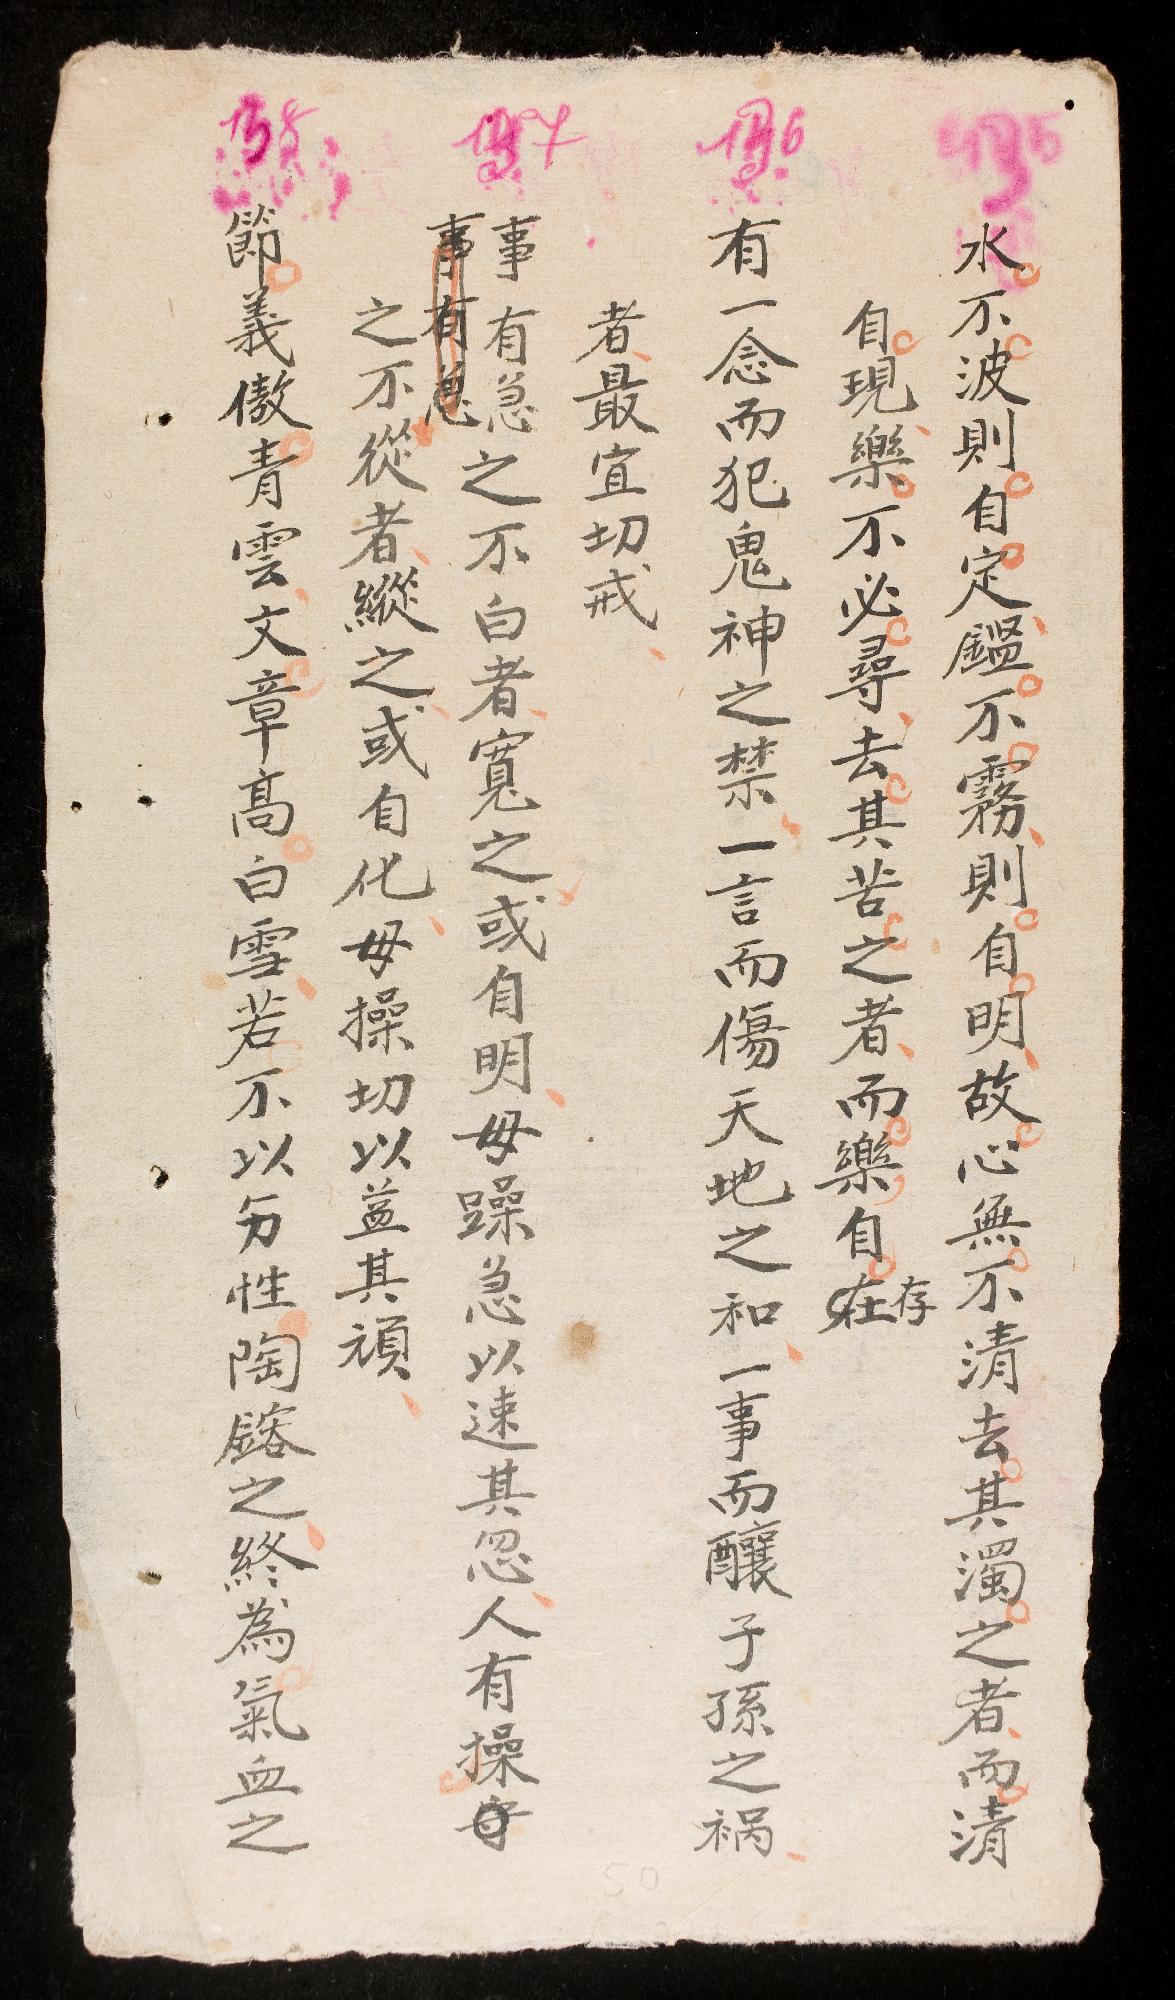 水不波則自定鑑不霧則自明故心無不清去其濁之者而清
自現樂不必尋去其苦之者而樂自在存
有一念而犯鬼神之禁一言而傷天地之和一事而釀子孫之禍
者最宜切戒
事有急之不白者寬之或自明毋躁急以速其忽人有操
事有急
之不從者縱之或自化毋操切以益其頑
節義傲青雲文章高白雪若不以性陶鎔之終為氣血之
50